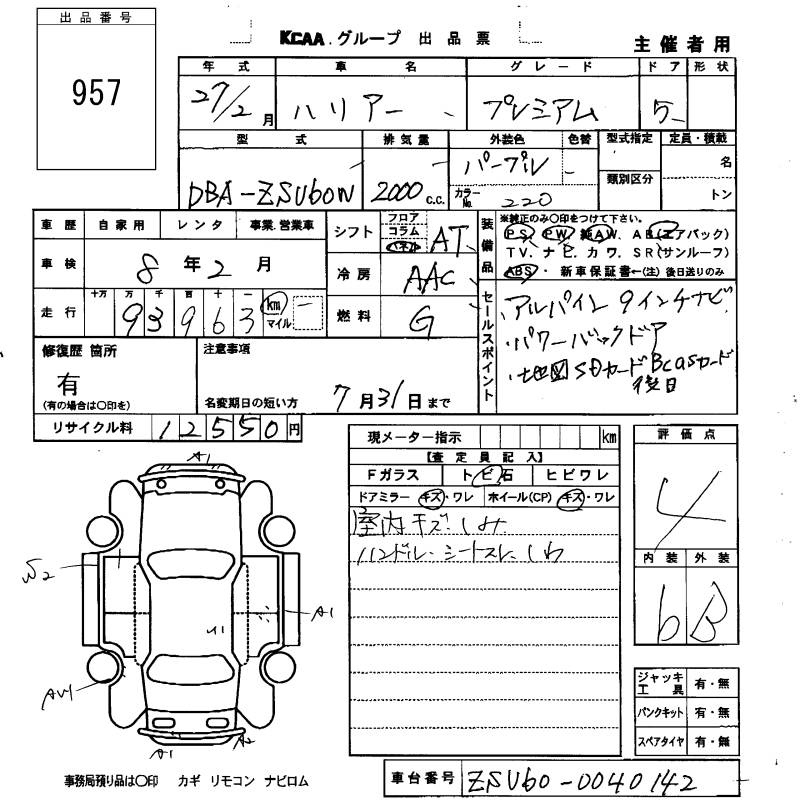 出品番号
957
KCAA.グループ 出品票
主催者用
年式 車名 グレード ドア 形状
27/2月 ハリアー プレミアム 5
型式 排気量 外装色 色替 型式指定 定員・積載
DBA-ZSU60W 2000 c.c. パープル - 名
カラーNo. 220 類別区分 トン
車歴 自家用 レンタ 事業.営業車
車検 8年2月
走行 十万 万 千 百 十 一
93963 km マイル
シフト フロア コラム パネル AT
冷房 AAC
燃料 G
装備品
※純正のみ〇印をつけて下さい。
PS PW 純AW. AB(エアバック)
TV. ナビ. カワ. SR(サンルーフ)
ABS ・ 新車保証書←(注) 後日送りのみ
セールスポイント
・アルパイン9インチナビ
・パワーバックドア
・地図SDカードBcasカード
後日
修復歴 箇所
有
(有の場合は〇印を)
注意事項
名変期日の短い方 7月31日まで
リサイクル料 12550円
現メーター指示 km
【査定員記入】
Fガラス トビ石 ヒビワレ
ドアミラー キズ・ワレ ホイール(CP) キズ・ワレ
室内キズ.しみ
ハンドル・シートスレ.しわ
評価点
4
内装 外装
b B
ジャッキ工具 有・無
パンクキット 有・無
スペアタイヤ 有・無
A1
W2
A1
AW1
A1
A2
事務局預り品は〇印 カギ リモコン ナビロム
車台番号 ZSU60-0040142